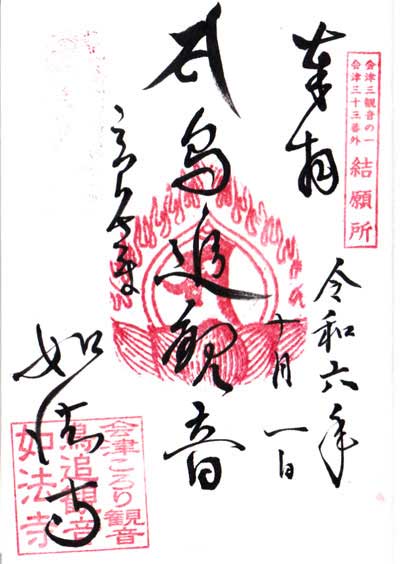 会津三観音の一
会津三十三番外
結願所
奉拝
令和六年
十月一日
鳥追観音
如法寺
会津ころり観音
鳥追観音
如法寺